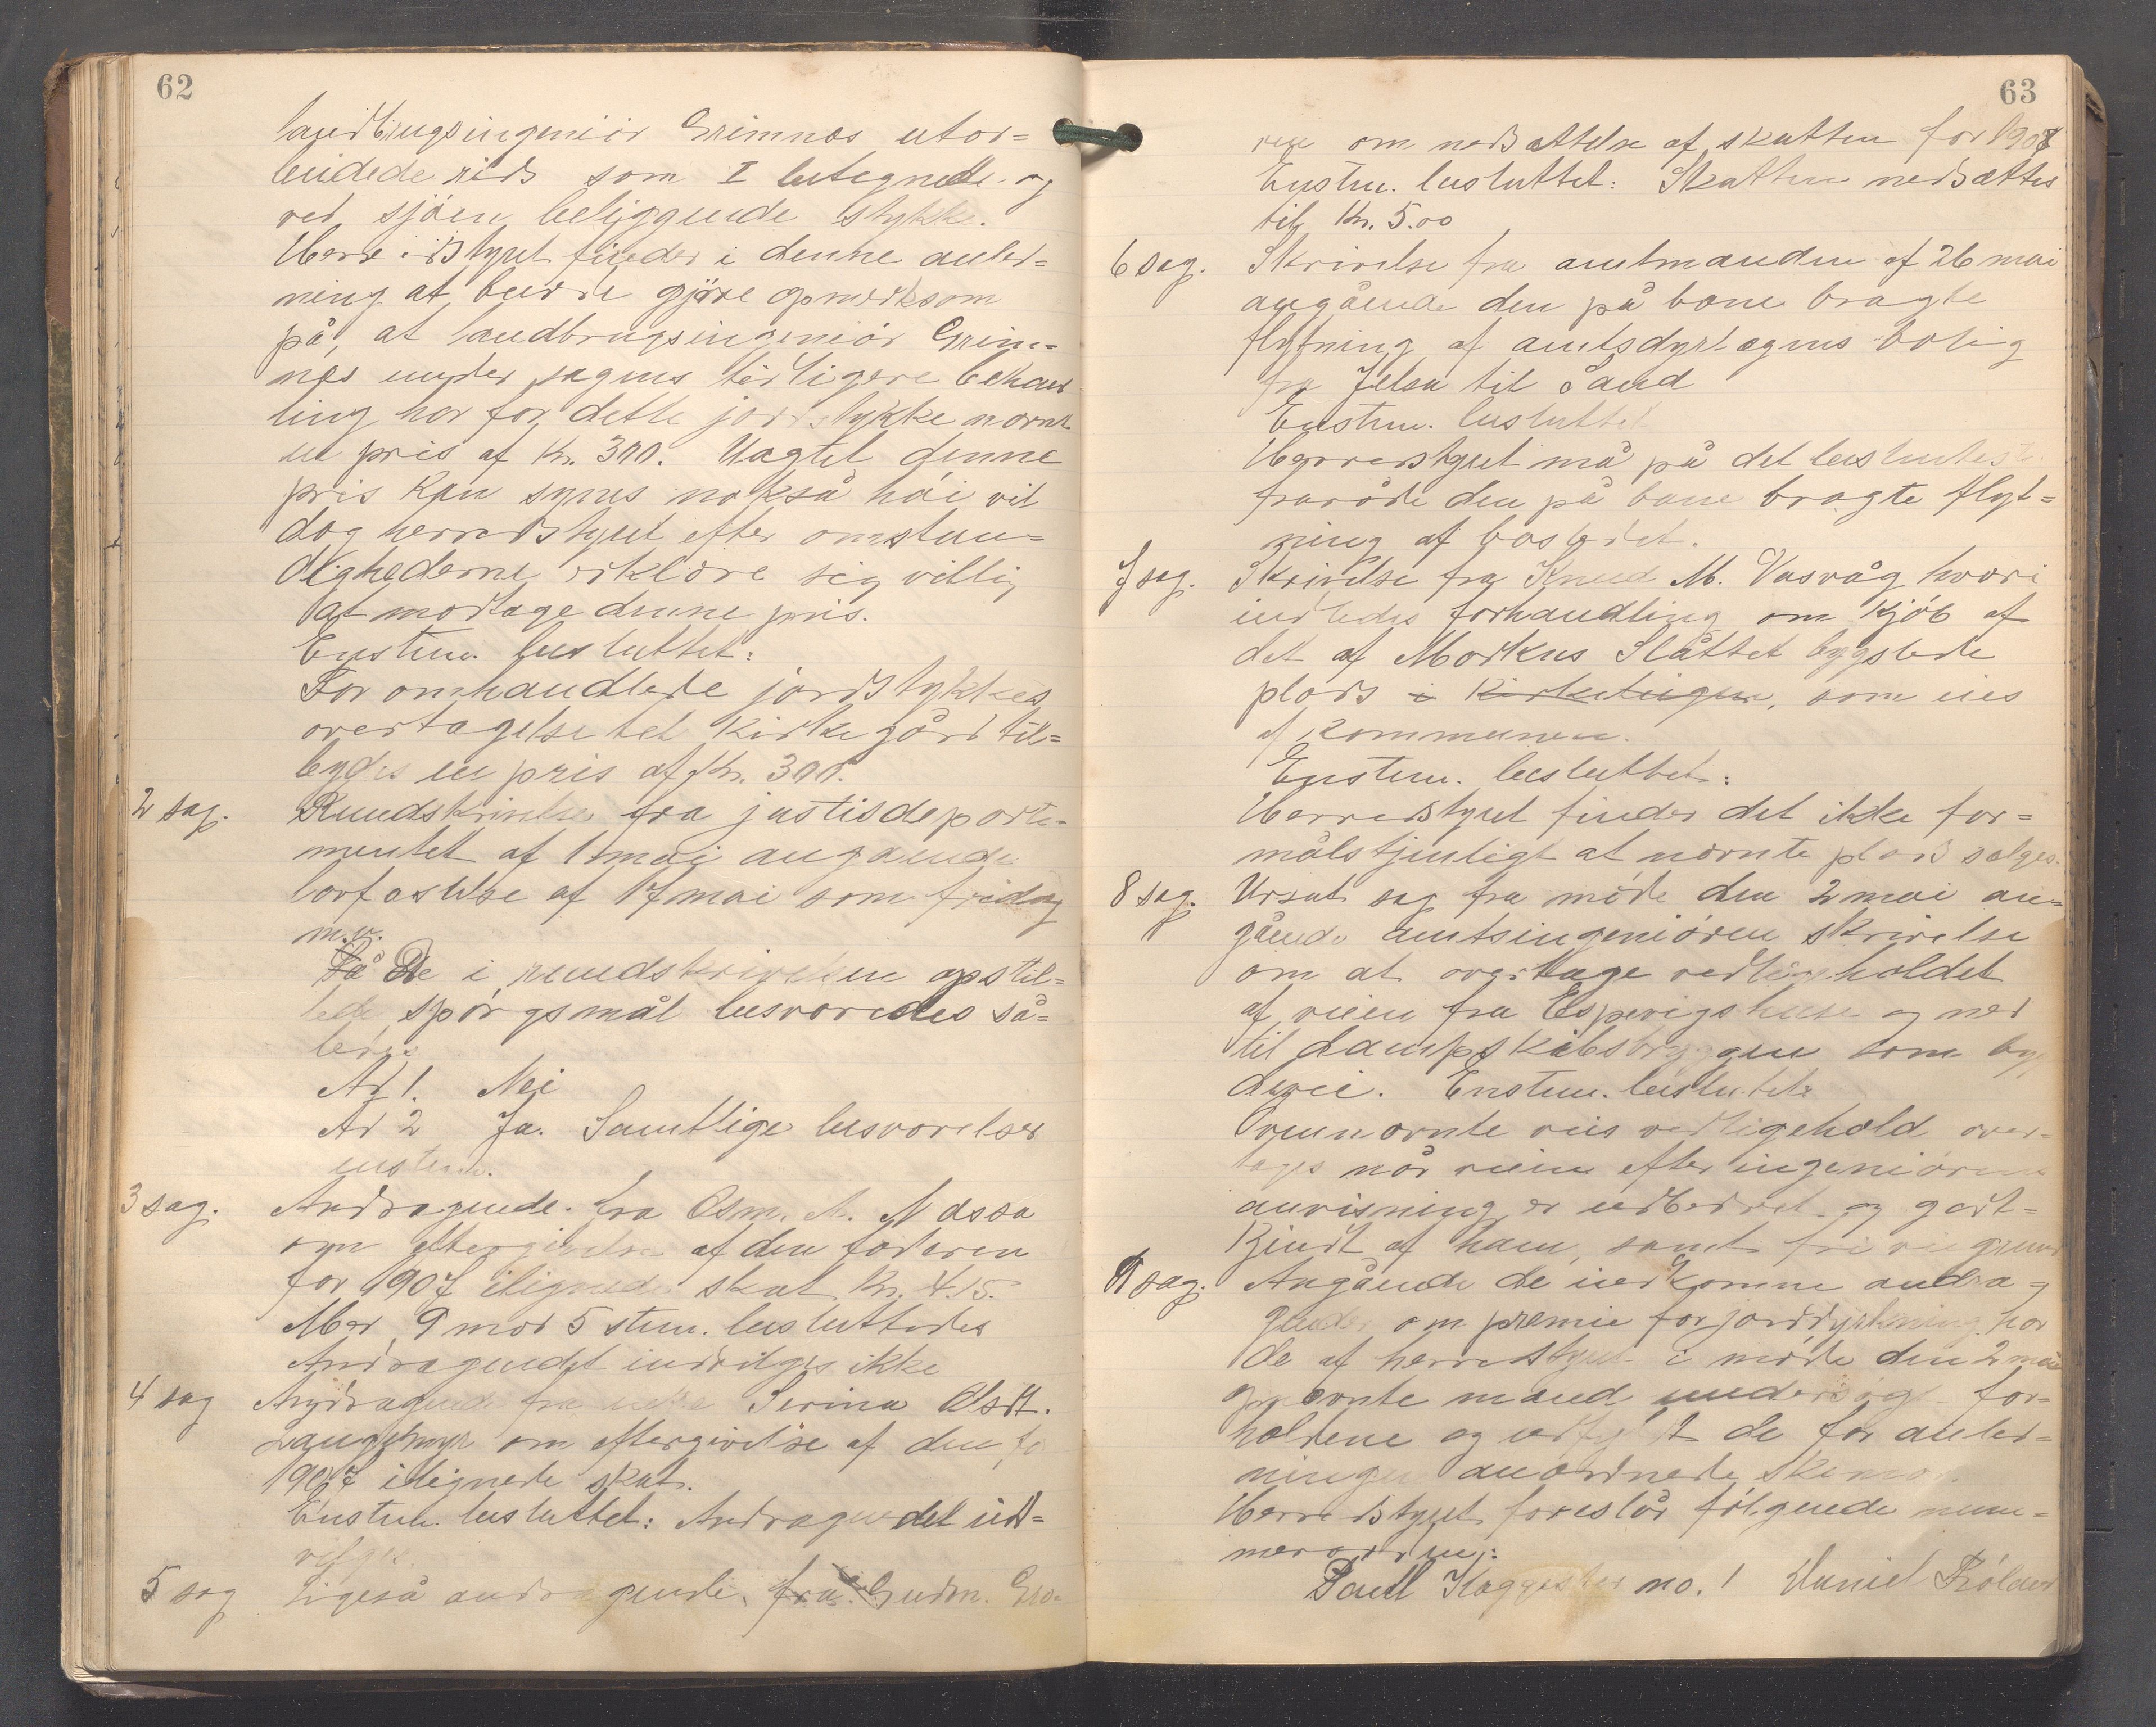 62
landbrugsingeniör Grimnæs utar-
beidede rids som I betegnede og
ved sjöen beliggende stykke.
Herredstyret finder i denne anled-
ning at burde gjöre opmerksom
på, at landbrugsingeniör Grim-
næs under sagens tidligere behand
ling har for dette jordstykke nævnt
en pris af Kr. 300. Uagtet denne
pris kan synes nokså höi vil
dog herredstyret efter omstæn-
dighederne erklære sig villig
at modtage denne pris.
Enstem. besluttet:
For omhandlede jordstykkes
overtagelse tel kirkegård til-
bydes en pris af Kr. 300.
2 sag. Rundskrivelse fra justisdeparte-
mentet af 1 mai angående
lovfæstelse af 17 mai som fridag
m.v.
På de i rundskrivelsen opstil-
lede spörgsmål besvaredes så-
ledes
Ad 1. Nei
Ad 2 Ja. Samtlige besvarelser
enstem.
3 sag. Andragende fra Osm. A. Nassa
om eftergivelse af den faderen
for 1907 ilignede skat Kr. 4.15.
Med 9 mod 5 stem. besluttedes
Andragendet indvilges ikke
4 sag Andragende fra enke Serina Olsdt.
Langemyr om eftergivelse af den for
1907 ilignede skat.
Enstem. besluttet: Andragendet ind-
vilges.
5 sag Ligeså andragende fra Gudm. Gro-
63
om nedsættelse af skatten for 1907
Enstem. besluttet: Skatten nedsættes
til Kr. 5.00
6 sag. Skrivelse fra amtmanden af 26 mai
angående den på bane bragte
flytning af amtsdyrlægens bolig
fra Jelsa til Sand
Enstem. besluttet
Herredstyret må på det bestemteste
fraråde den på bane bragte flyt-
ning af bostedet.
7 sag. Skrivelse fra Knud M. Vasvåg hvori
indledes forhandling om kjöb af
det af Markus Slåttet bygslede
plads i Kirketeigen, som eies
af kommunen.
Enstem. besluttet:
Herredstyret finder det ikke for-
målstjenligt at nævnte plads sælges.
8 sag. Udsat sag fra möde den 2 mai an-
gående amtsingeniören skrivelse
om at overtage vedligeholdet
af veien fra Espevigshuse og ned
til dampskibsbryggen som byg
devei. Enstem. besluttet:
Ovennævnte veis vedligehold over-
tages når veien efter ingeniörens
anvisning er udbedret og godt-
kjendt af ham, samt fri veigrund
9 sag. Angående de indkomne andra-
gender om premie for jorddyrkning har
de af herredstyret i möde den 2 mai
opnævnte mænd undersögt for-
holdene og udfyldt de for anled-
ningen anordnede skemaer.
Herredstyret foreslår fölgende num-
merorden:
Paul no. 1 Daniel